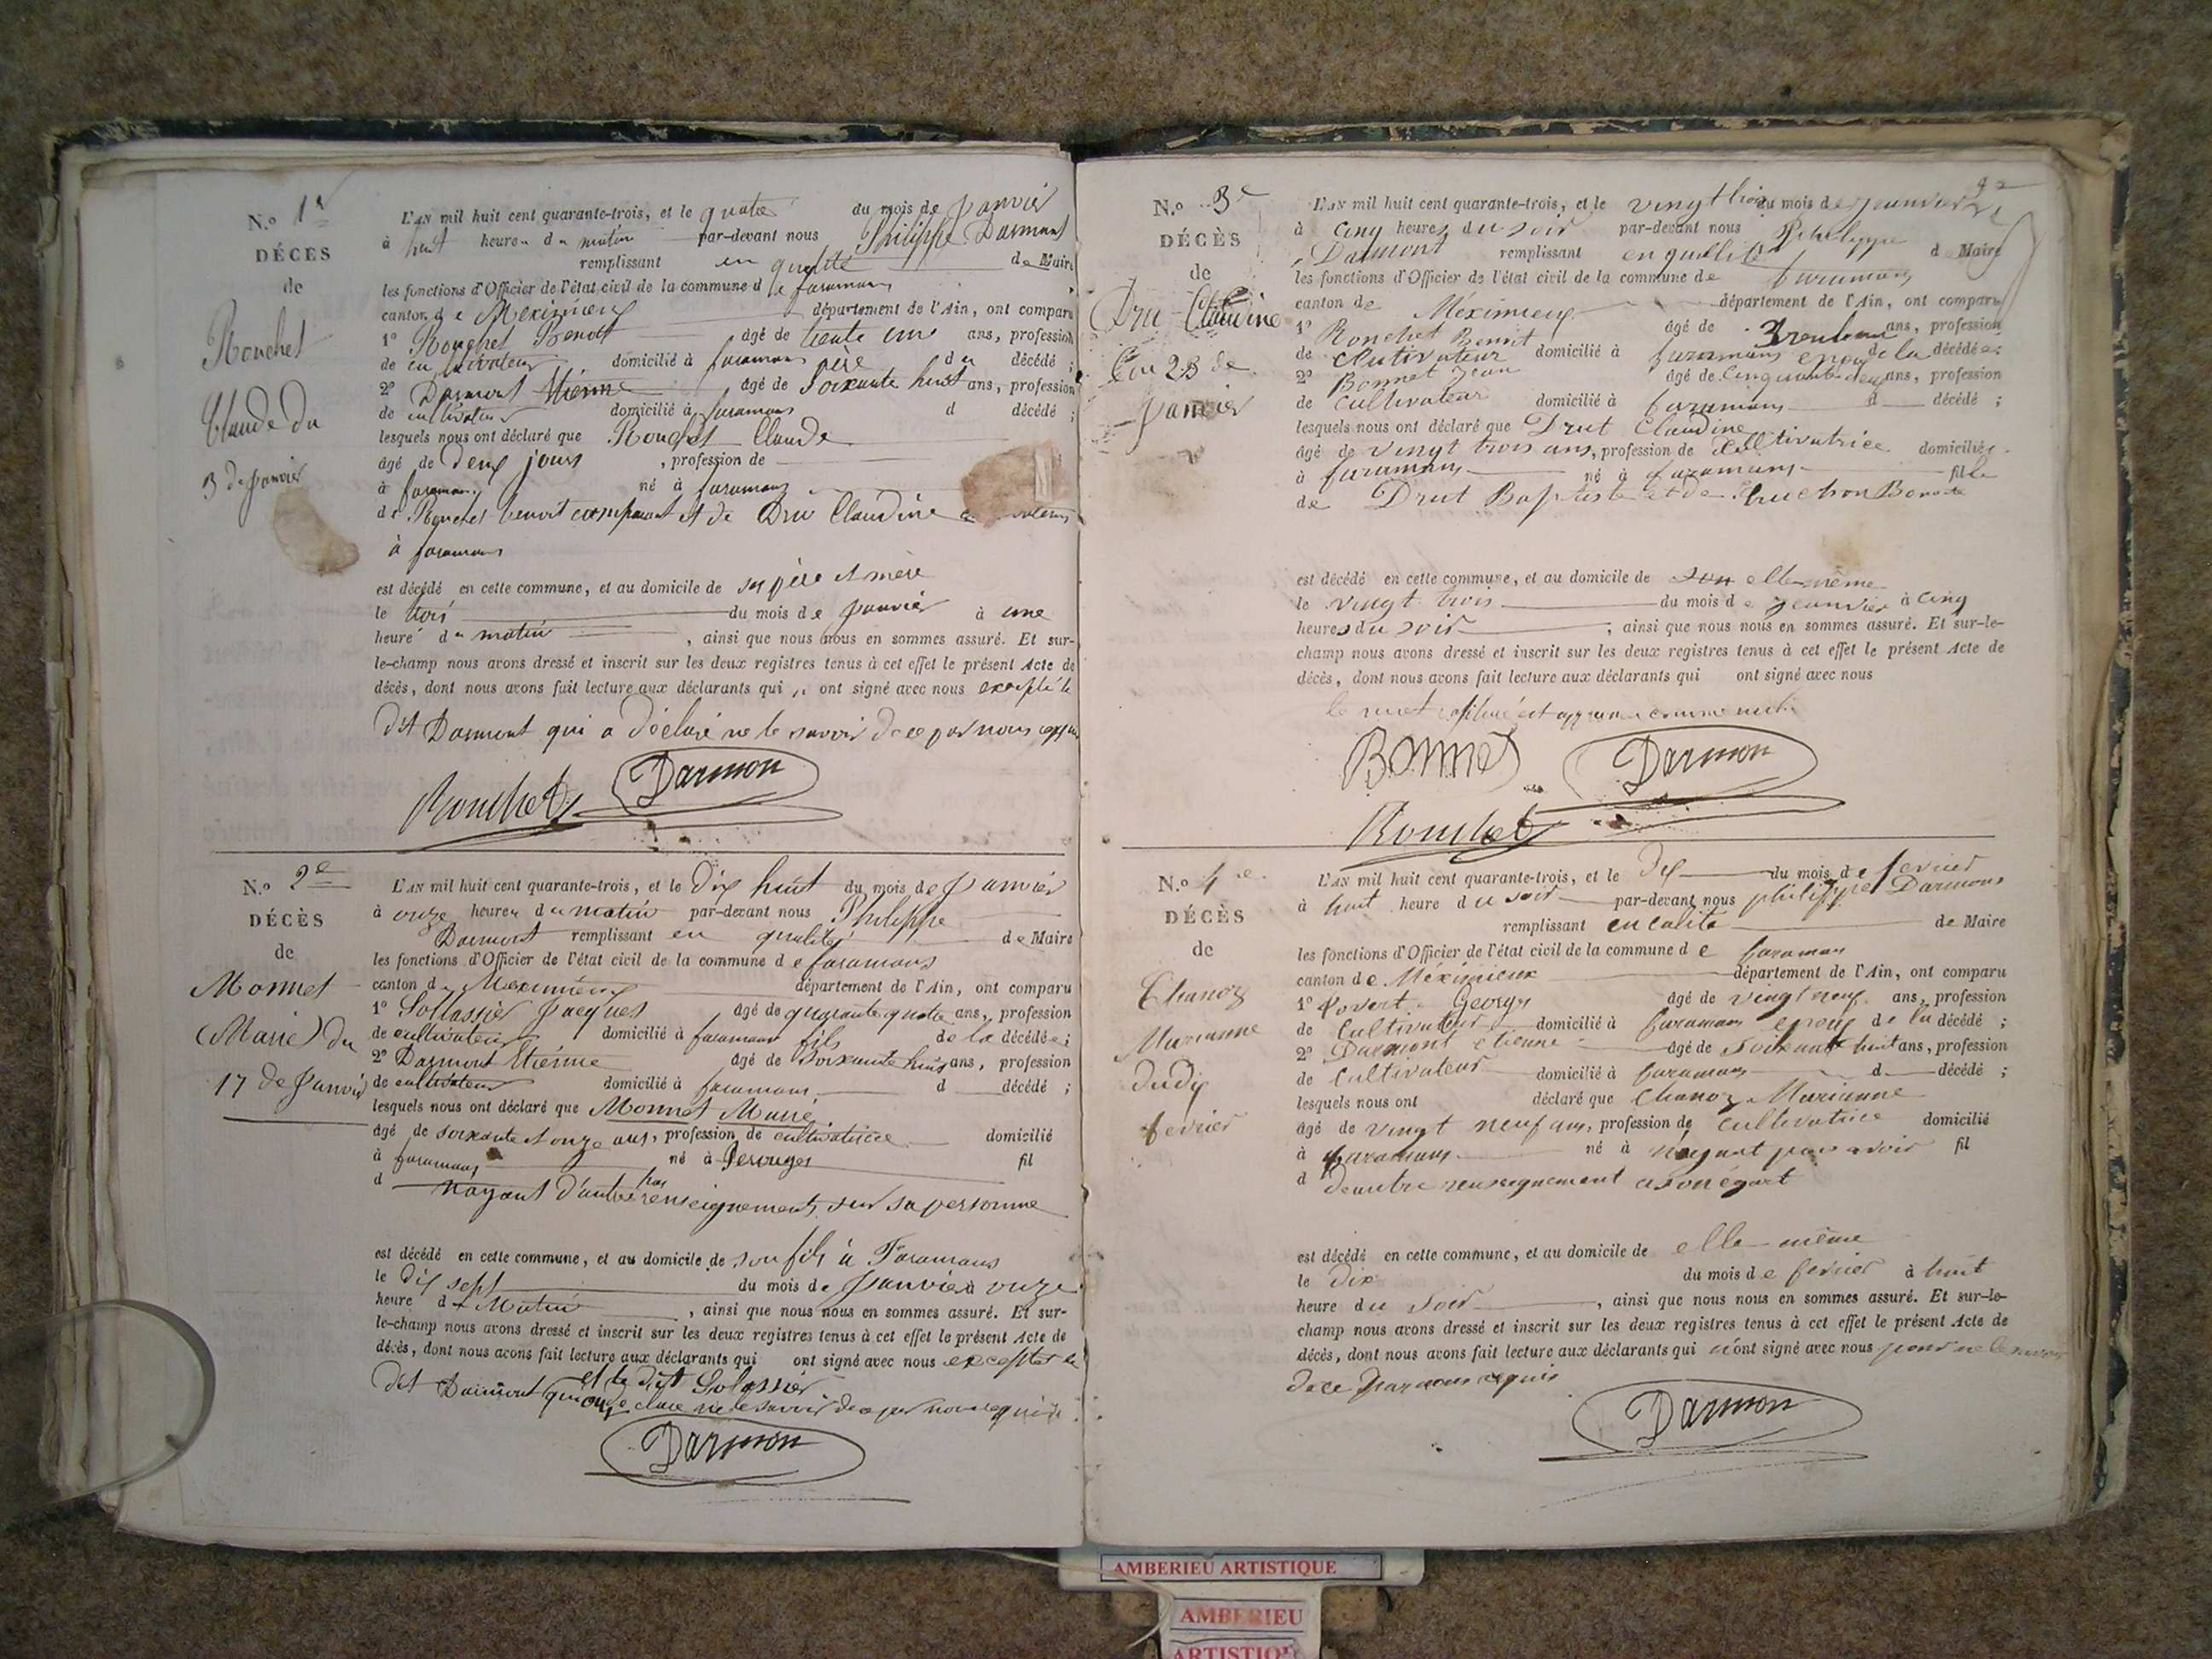 N.º 1er
DÉCES
de
Rouchet
Claude du
3 de Janvier
L'AN mil huit cent quarante-trois, et le quatre du mois de Janvier
à huit heures du matin par-devant nous Philippe Darmont
remplissant en qualité de Maire
les fonctions d'Officier de l'état civil de la commune de faramans
canton de Meximieux département de l'Ain, ont comparu
1º Rouchet Benoit âgé de trente un ans, profession
de cultivateur domicilié à faramans père du décédé ;
2º Darmont Etienne âgé de soixante huit ans, profession
de cultivateur domicilié à faramans d décédé ;
lesquels nous ont déclaré que Rouchet Claude
âgé de deux jours , profession de
à faramans né à faramans
de Rouchet benoit comparant et de Dru Claudine
à faramans
est décédé en cette commune, et au domicile de ses père et mère
le trois du mois de Janvier à une
heure du matin , ainsi que nous nous en sommes assuré. Et sur-
le-champ nous avons dressé et inscrit sur les deux registres tenus à cet effet le présent Acte de
décès, dont nous avons fait lecture aux déclarants qui ont signé avec nous excepté le
dit Darmont qui a déclaré ne le savoir de ce par nous requis
Rouchet Darmon
N.º 2e
DÉCÈS
de
Monnet
(Marie) du
17 de Janvier
L'AN mil huit cent quarante-trois, et le dix huit du mois de Janvier
à onze heures du matin par-devant nous Philippe
Darmont remplissant en qualité de Maire
les fonctions d'Officier de l'état civil de la commune de faramans
canton de Meximieux département de l'Ain, ont comparu
1º Sollassier Jacques âgé de quarante quatre ans, profession
de cultivateur domicilié à faramans fils de la décédée ;
2º Darmont Etienne âgé de soixante huit ans, profession
de cultivateur domicilié à faramans d décédé ;
lesquels nous ont déclaré que Monnet Marie
âgé de soixante et onze ans, profession de cultivatrice domicilié
à faramans né à Perouges fil
d nayant d'autres renseignements sur sa personne
est décédé en cette commune, et au domicile de son fils à Faramans
le dix sept du mois de Janvier à onze
heure du Matin , ainsi que nous nous en sommes assuré. Et sur-
le-champ nous avons dressé et inscrit sur les deux registres tenus à cet effet le présent Acte de
décès, dont nous avons fait lecture aux déclarants qui ont signé avec nous excepter le
et le dit Solassier
dit Darmont qui ont déclaré ne le savoir de ce par nous requis
Darmon
N.º 3e
DÉCÈS
de
Dru Claudine
23 de
Janvier
L'AN mil huit cent quarante-trois, et le vingt trois du mois de Janvier
à cinq heures du soir par-devant nous Philippe
Darmont remplissant en quallité d Maire
les fonctions d'Officier de l'état civil de la commune de faramans
canton de Méximieux département de l'Ain, ont comparu
1º Ronchet Benoit âgé de ans, profession
de Cultivateur domicilié à faramans epoux de la décédée ;
2º Bonnet Jean âgé de Cinquante deux ans, profession
de Cultivateur domicilié à faramans d décédé ;
lesquels nous ont déclaré que Drut Claudine
âgé de vingt trois ans, profession de Cultivatrice domiciliée
à faramans né à faramans fille
de Drut Baptiste et de Truchon Benoite
est décédé en cette commune, et au domicile de elle même
le vingt trois du mois de Jeanvier à Cinq
heures du soir ; ainsi que nous nous en sommes assuré. Et sur-le-
champ nous avons dressé et inscrit sur les deux registres tenus à cet effet le présent Acte de
décès, dont nous avons fait lecture aux déclarants qui ont signé avec nous
le mot
Bonnet Darmon
Ronchet
N.º 4e
DÉCÈS
de
Chanoz
Marianne
du dix
fevrier
L'AN mil huit cent quarante-trois, et le Dix du mois de fevrier
à huit heure du soir par-devant nous philippe Darmons
remplissant en calité de Maire
les fonctions d'Officier de l'état civil de la commune de faraman
canton de Méximieux département de l'Ain, ont comparu
1º Georges âgé de vingt neuf ans, profession
de Cultivateur domicilié à faramans epoux de la décédé ;
2º Darmont etienne âgé de soixante huit ans, profession
de Cultivateur domicilié à faramans d décédé ;
lesquels nous ont déclaré que Chanoz Marianne
âgé de vingt neuf ans, profession de cultivatrice domicilié
à faramans né à nayant pas avoir fil
d deautre renseignement a son égart
est décédé en cette commune, et au domicile de elle même
le dix du mois de fevrier à huit
heure du Soir , ainsi que nous nous en sommes assuré. Et sur-le-
champ nous avons dressé et inscrit sur les deux registres tenus à cet effet le présent Acte de
décès, dont nous avons fait lecture aux déclarants qui n'ont signé avec nous pour ne le savoir
de ce par nous requis
Darmon
AMBERIEU ARTISTIQUE
AMBERIEU
ARTISTIQUE